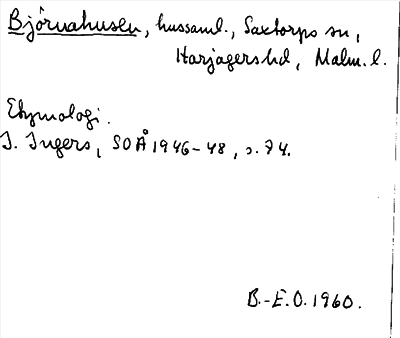 Björnahusen, hussaml., Saxtorps sn,
Harjagers hd, Malm. l.
Etymologi.
I. Ingers, SOÅ 1946-48, s. 74.
B.-E.O. 1960.